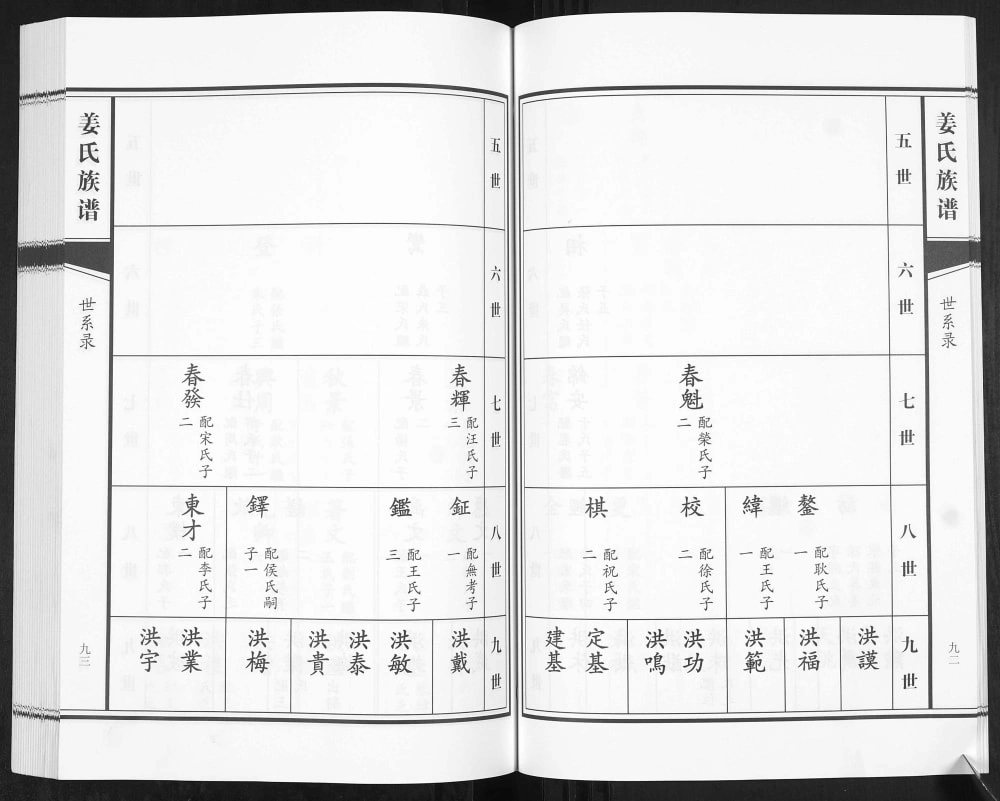 姜氏族谱
世系录
九二
五世
六世
七世
春魁
配榮氏子
二
八世
鏊
配耿氏子
一
緯
配王氏子
一
校
配徐氏子
二
棋
配祝氏子
二
九世
洪謨
洪福
洪範
洪功
洪鳴
定基
建基
五世
六世
七世
春輝
配汪氏子
三
春發
配宋氏子
二
八世
鉦
配無考子
一
鑑
配王氏子
三
鐸
配侯氏嗣
子一
東才
配李氏子
二
九世
洪戴
洪敏
洪泰
洪貴
洪梅
洪業
洪宇
姜氏族谱
世系录
九三